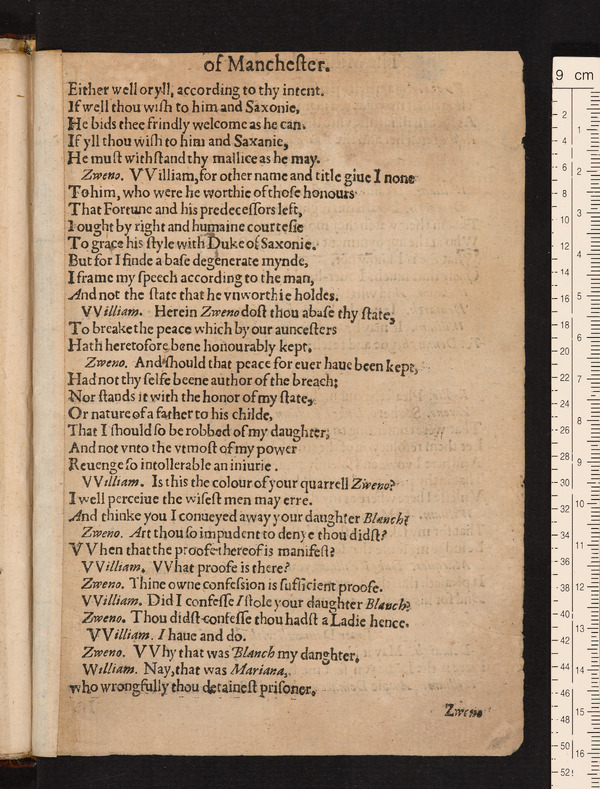 of Mancheſter.
Either well or yll, according to thy intent.
If well thou wiſh to him and Saxonie,
He bids thee frindly welcome as he can.
If yll thou wiſh to him and Saxanie,
He muſt withſtand thy mallice as he may.
Zweno. VVilliam, for other name and title giue I none
To him, who were he worthie of thoſe honours
That Fortune and his predeceſſors left,
I ought by right and humaine courteſie
To grace his ſtyle with Duke of Saxonie.
But for I finde a baſe degenerate mynde,
I frame my ſpeech according to the man,
And not the ſtate that he vnworthie holdes.
VVilliam. Herein Zweno doſt thou abaſe thy ſtate,
To breake the peace which by our aunceſters
Hath heretofore bene honourably kept.
Zweno. And ſhould that peace for euer haue been kept,
Had not thy ſelfe beene author of the breach:
Nor ſtands it with the honor of my ſtate,
Or nature of a father to his childe,
That I ſhould ſo be robbed of my daughter,
And not vnto the vtmoſt of my power
Reuenge ſo intollerable an iniurie.
VVilliam. Is this the colour of your quarrell Zweno?
I well perceiue the wiſeſt men may erre.
And thinke you I conueyed away your daughter Blanch?
Zweno. Art thou ſo impudent to denye thou didſt?
VVhen that the proofe thereof is manifeſt?
VVilliam. VVhat proofe is there?
Zweno. Thine owne confeſsion is ſufficient proofe.
VVilliam. Did I confeſſe I ſtole your daughter Blanch?
Zweno. Thou didſt confeſſe thou hadſt a Ladie hence.
VVilliam. I haue and do.
Zweno. VVhy that was Blanch my danghter.
William. Nay, that was Mariana,
who wrongfully thou detaineſt priſoner.
Zweno
9 cm
2
1
4
6
2
8
10
3
12
4
14
16
5
18
6
20
22
7
24
26
8
28
9
30
32
10
34
11
36
38
12
40
13
42
44
14
46
48
15
50
16
52